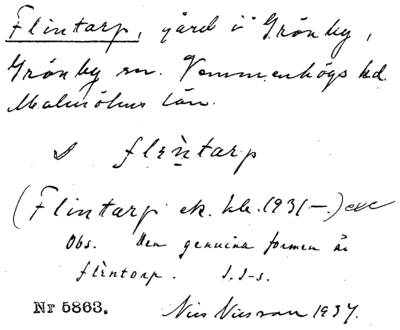 Flintarp, gård i Grönby,
Grönby sn. Vemmenhögs hd.
Malmöhus län.
s flèntarp
(Flintarp ek. kb. 1931–.) exc
Obs. Den genuina formen är
flèntorp. I.I-s.
Nr 5863. Nils Nilsson 1937.